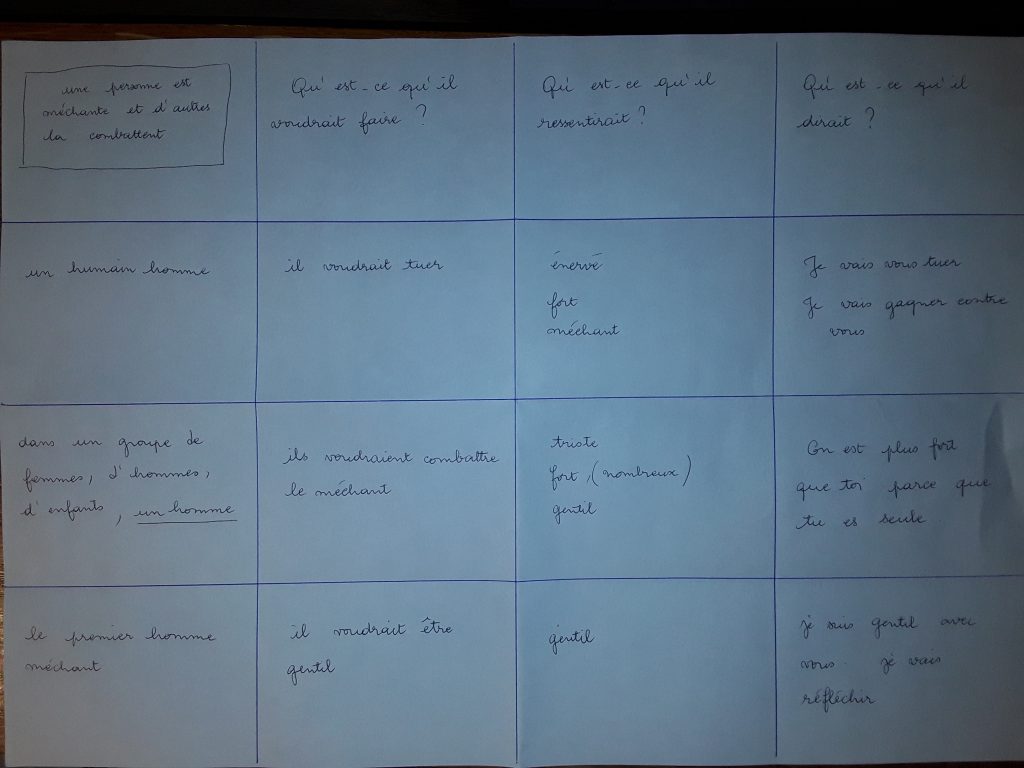 une personne est
méchante et d'autres
la combattent
Qu'est-ce qu'il
voudrait faire ?
Qu'est-ce qu'il
ressentirait ?
Qu'est-ce qu'il
dirait ?
un humain homme
il voudrait tuer
énervé
fort
méchant
Je vais vous tuer
Je vais gagner contre
vous
dans un groupe de
femmes, d'hommes,
d'enfants, un homme
ils voudraient combattre
le méchant
triste
fort (nombreux)
gentil
On est plus fort
que toi parce que
tu es seule.
le premier homme
méchant
il voudrait être
gentil
gentil
je suis gentil avec
vous. je vais
réfléchir